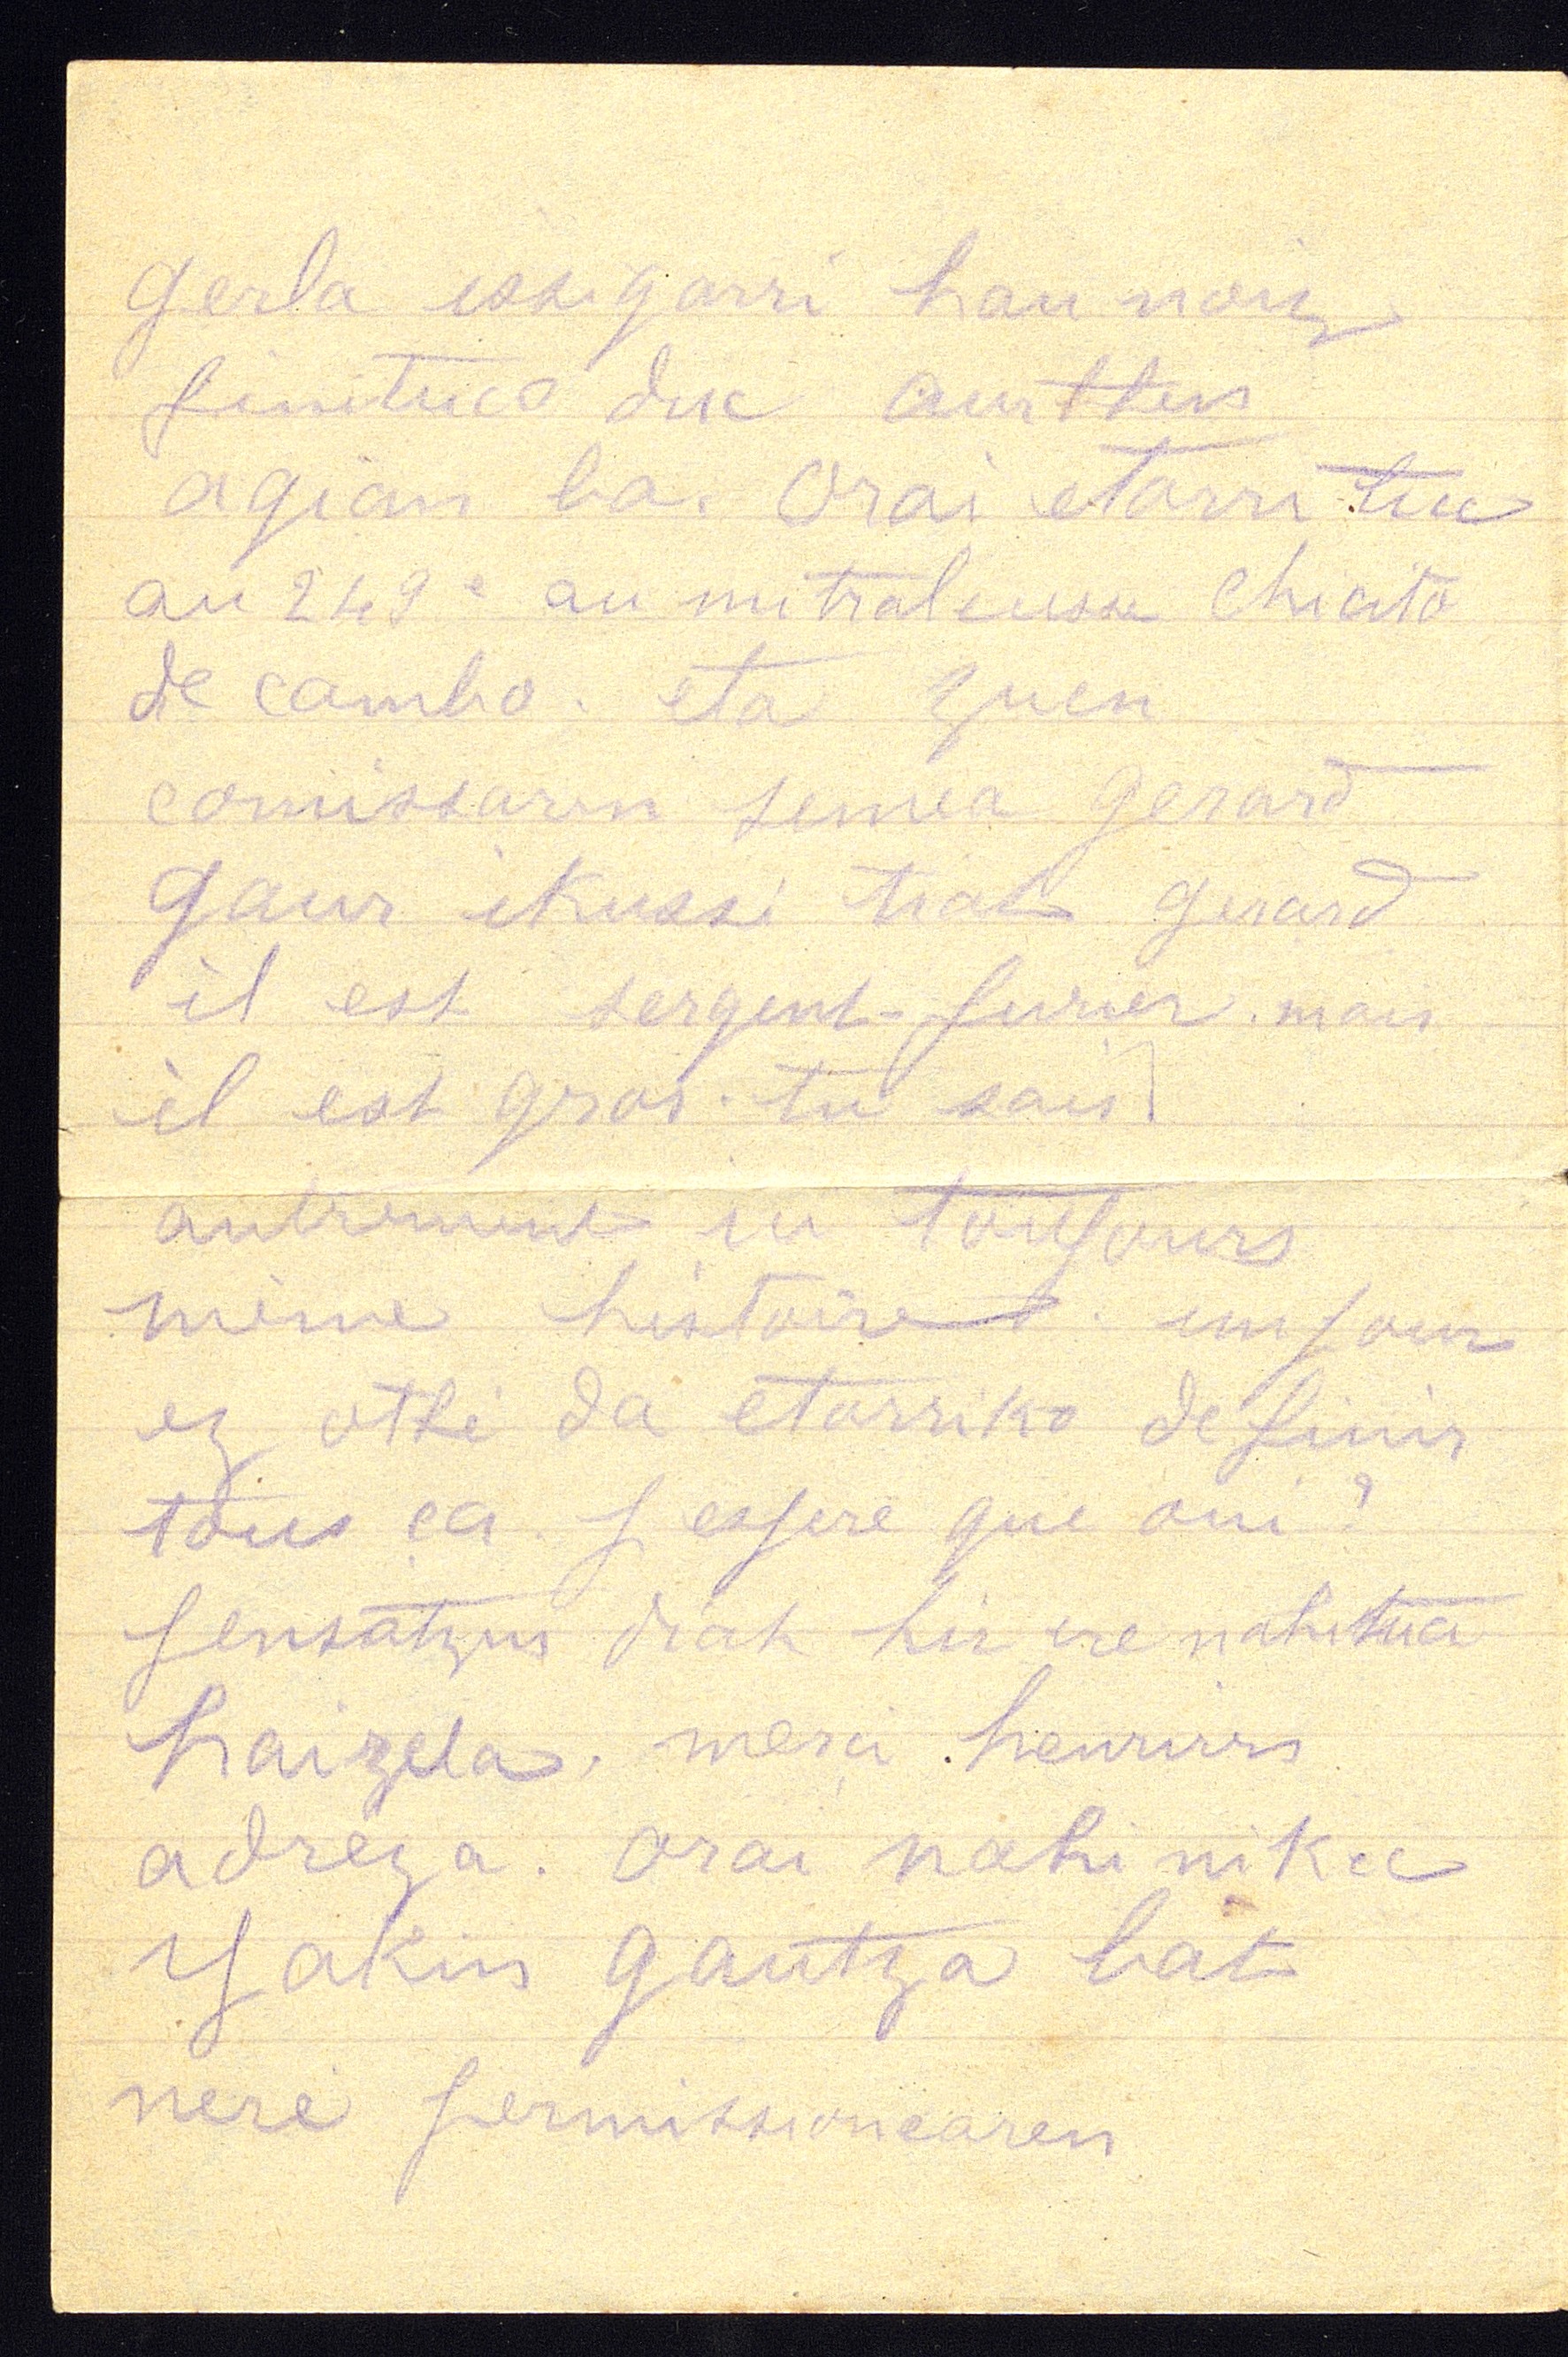 gerla issigarri hau noiz
finituco duc aurtten
agian ba. Orai etorri tuc
au 249e au mitraleusse Chicito
de cambo. eta zuen
comissarin semea gerard
gaur ikussi tiat gerard
il est sergent-furier. mais
il est gros. tu sais
autrement ici toujours
même histoires. un jour
ez othe da etorriko de finir
tous ça. j espere que oui?
pensatzen diat hir ere nahitua
haizela. merci henriren
adreza. orai nahi nikec
yakin gautza bat
nere permissionearen